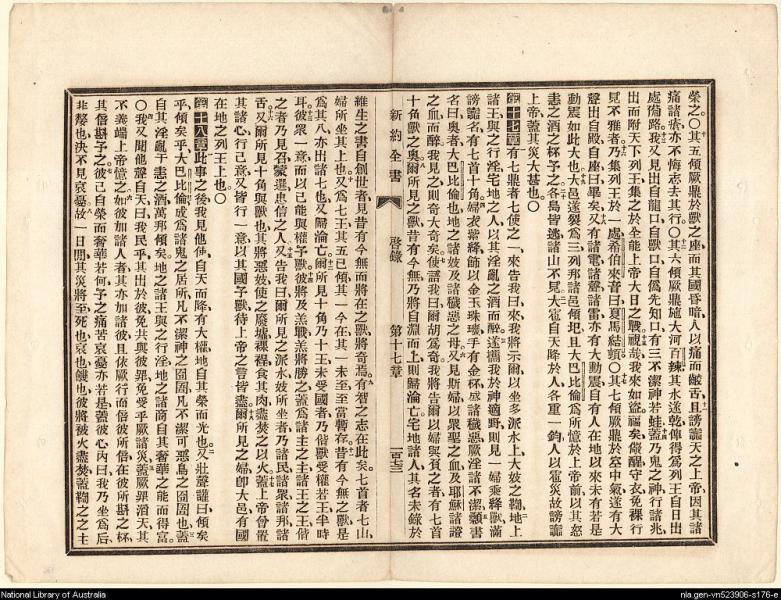 榮之〇其五傾厥鼎於獸之座而其國昏暗人以痛而齩舌且謗讟天之上帝因其諸
痛諸瘡亦不悔志去其行〇其六傾厥鼎於大河百辣其水遂乾俾得爲列王自日出
處備路我又見出自龍口自獸口自僞先知口有三不潔神若蛙蓋乃鬼之神行諸兆
出而附天下列王集之於全能上帝大日之戰視哉我來如盜福矣儆醒守衣免裸行
見不雅者乃集列王於一處希伯來音曰夏馬結頓〇其七傾厥鼎於空中氣遂有大
聲出自殿自座曰畢矣又有諸電諸聲諸雷亦有大動震自有人在地以來未有若是
動震如此大也大邑遂裂爲三列邦諸邑傾圯且大巴比倫爲所憶於上帝前以其怒
恚之酒之杯予之各島皆逃諸山不見大雹自天降於人各重一鈞人以雹災故謗讟
上帝蓋其災大甚也〇
第十七章有七鼎者七使之一來告我曰來我將示爾以坐多派水上大妓之鞫地上
諸王與之行淫宅地之人以其淫亂之酒而醉遂攜我於神適野則見一婦乘緋獸滿
謗讟名有七首十角婦衣紫緋飾以金玉珠瓊手有金杯盛諸穢惡厥淫諸不潔顙書
名曰奧者大巴比倫也地之諸妓及諸穢惡之母又見斯婦以眾聖之血及耶穌諸證
之血而醉我見之則奇大奇矣使謂我曰爾胡爲奇我將告爾以婦與負之者有七首
十角獸之奧爾所見之獸昔有今無乃將自淵而上則歸淪亡宅地諸人其名未錄於
新約全書
啓錄
第十七章
維生之書自創世者見昔有今無而將在之獸將奇焉有智之志在此矣七首者七山
婦所坐其上也又爲七王其五已傾其一今在其一未至至當暫存昔有今無之獸是
爲其八亦出諸七也又歸淪亡爾所見十角乃十王未受國者乃偕獸受權若王半時
耳彼眾一意而以己能與權予獸彼將及羔戰羔將勝之蓋爲諸主之主諸王之王偕
之者乃見召蒙選忠信之人又告我曰爾所見之派水妓所坐者乃諸民諸眾諸邦諸
舌又爾所見十角與獸也其將惡妓使之廢墟裸裎食其肉盡焚之以火蓋上帝曾置
其諸心行己意又皆行一意以其國予獸待上帝之言皆盡爾所見之婦卽大邑有國
在地之列王上也〇
第十八章此事之後我見他使自天而降有大權地自其榮而光也又壯聲讙曰傾矣
乎傾矣乎大巴比倫成爲諸鬼之居所凡不潔神之囹圄凡不潔可惡鳥之囹圄也蓋
自其淫亂干恚之酒萬邦傾矣地之諸王與之行淫地之諸商自其奢華之能而得富
〇我又聞他聲自天曰我民乎其出於彼免共與彼罪免受乎厥諸災蓋厥罪滔天其
不義端上帝憶之如彼加諸人者其亦加諸彼且依厥行而倍彼所倍在彼所斟之杯
其倍斟予之彼己自榮而奢華若何予之痛苦哀憂亦若是蓋彼心內曰我乃坐爲后
非嫠也決不見哀憂故一日間其災將至死也哀也饑也彼將被火盡焚蓋鞫之之主
National Library of Australia
nla.gen-vn523906-s176-e